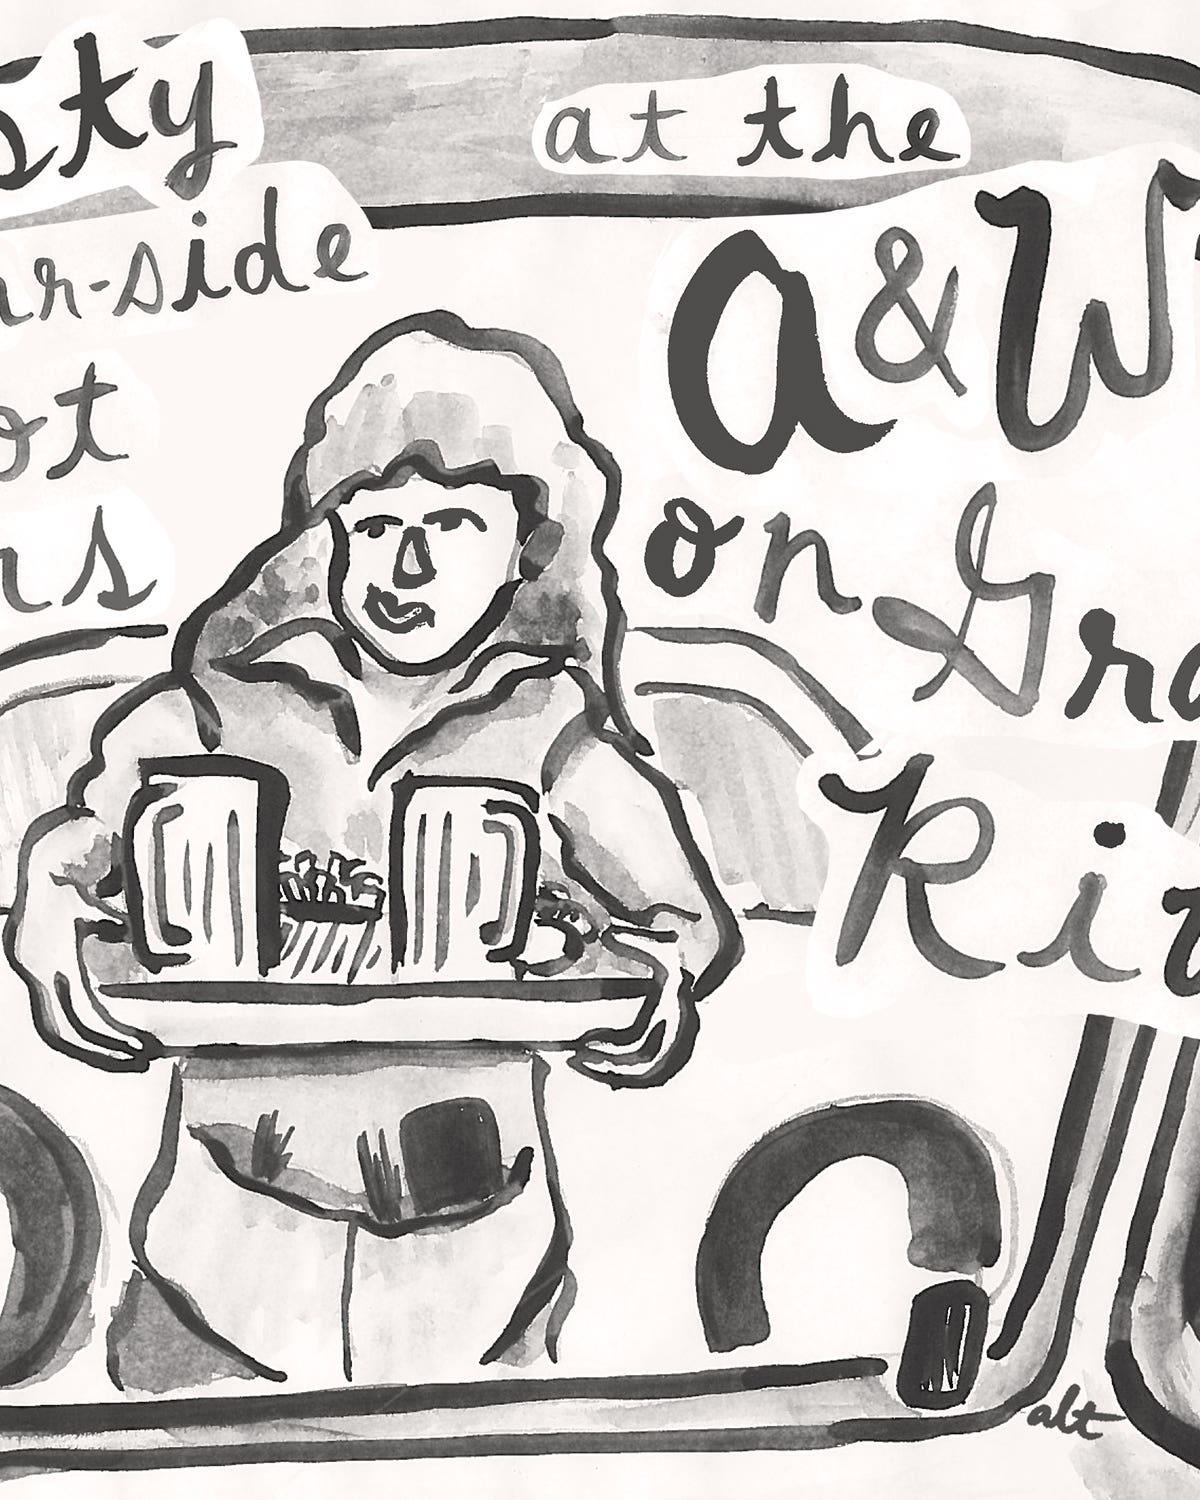 sty
ar-side
ot
rs
at the
a & W
on Gra
Rit
alt